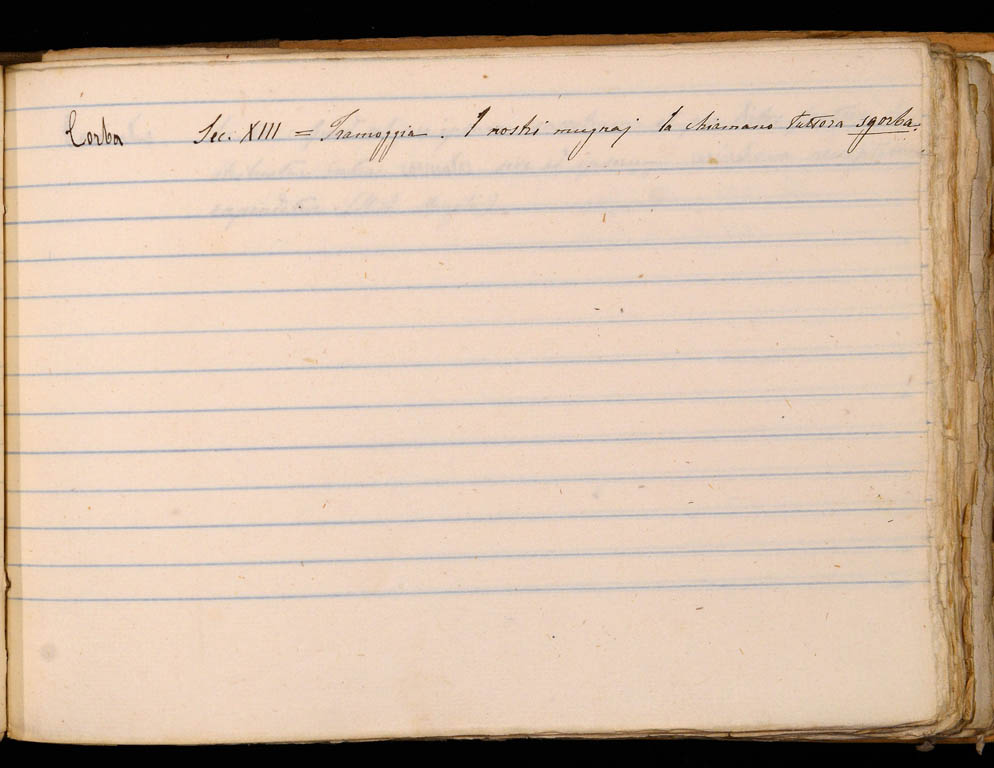 Corba Sec. XIII = Tramoggia. I nostri mugnaj la chiamano tuttora sgorba.